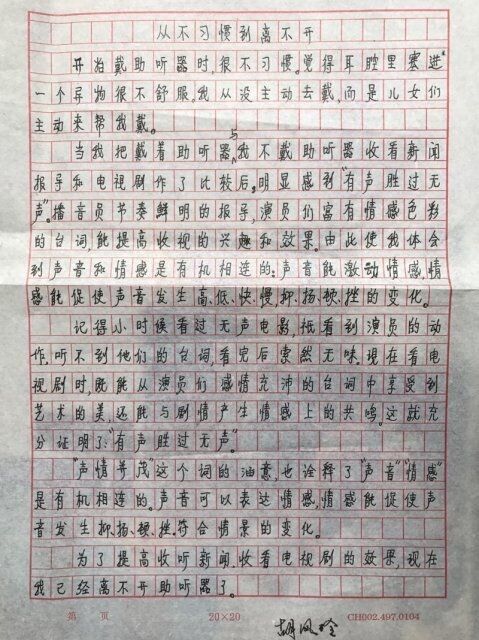 从不习惯到离不开
开始戴助听器时,很不习惯。觉得耳腔里塞进
一个异物很不舒服。我从没主动去戴,而是儿女们
主动来帮我戴。
当我把戴着助听器与我不戴助听器收看新闻
报导和电视剧作了比较后。明显感到"有声胜过无
声"。播音员节奏鲜明的报导,演员们富有情感色彩
的台词,能提高收视的兴趣和效果。由此使我体会
到声音和情感是有机相连的:声音能激动情感,情
感能促使声音发生高、低、快、慢,抑、扬、顿、挫的变化。
记得小时候看过无声电影,祗看到演员的动
作,听不到他们的台词,看完后索然无味。现在看电
视剧时,既能从演员们感情充沛的台词中享受到
艺术的美,还能与剧情产生情感上的共鸣。这就充
分证明了:"有声胜过无声"
"声情并茂"这个词的油意,也诠释了"声音""情感"
是有机相连的。声音可以表达情感,情感能促使声
音发生抑、扬、顿、挫.符合情景的变化。
为了提高收听新闻、收看电视剧的效果,现在
我已经离不开助听器了。
第 页 20×20 CH002.497.0104
胡凤玲